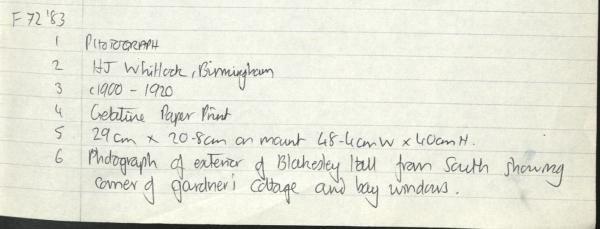 F 72 '83
1 PHOTOGRAPH
2 HJ Whitlock, Birmingham
3 c1900 - 1920
4 Gelatine Paper Print
5 29cm x 20.8cm on mount 48.4cm W x 40cm H.
6 Photograph of exterior of Blakesley Hall from South showing
corner of gardner's cottage and bay windows.